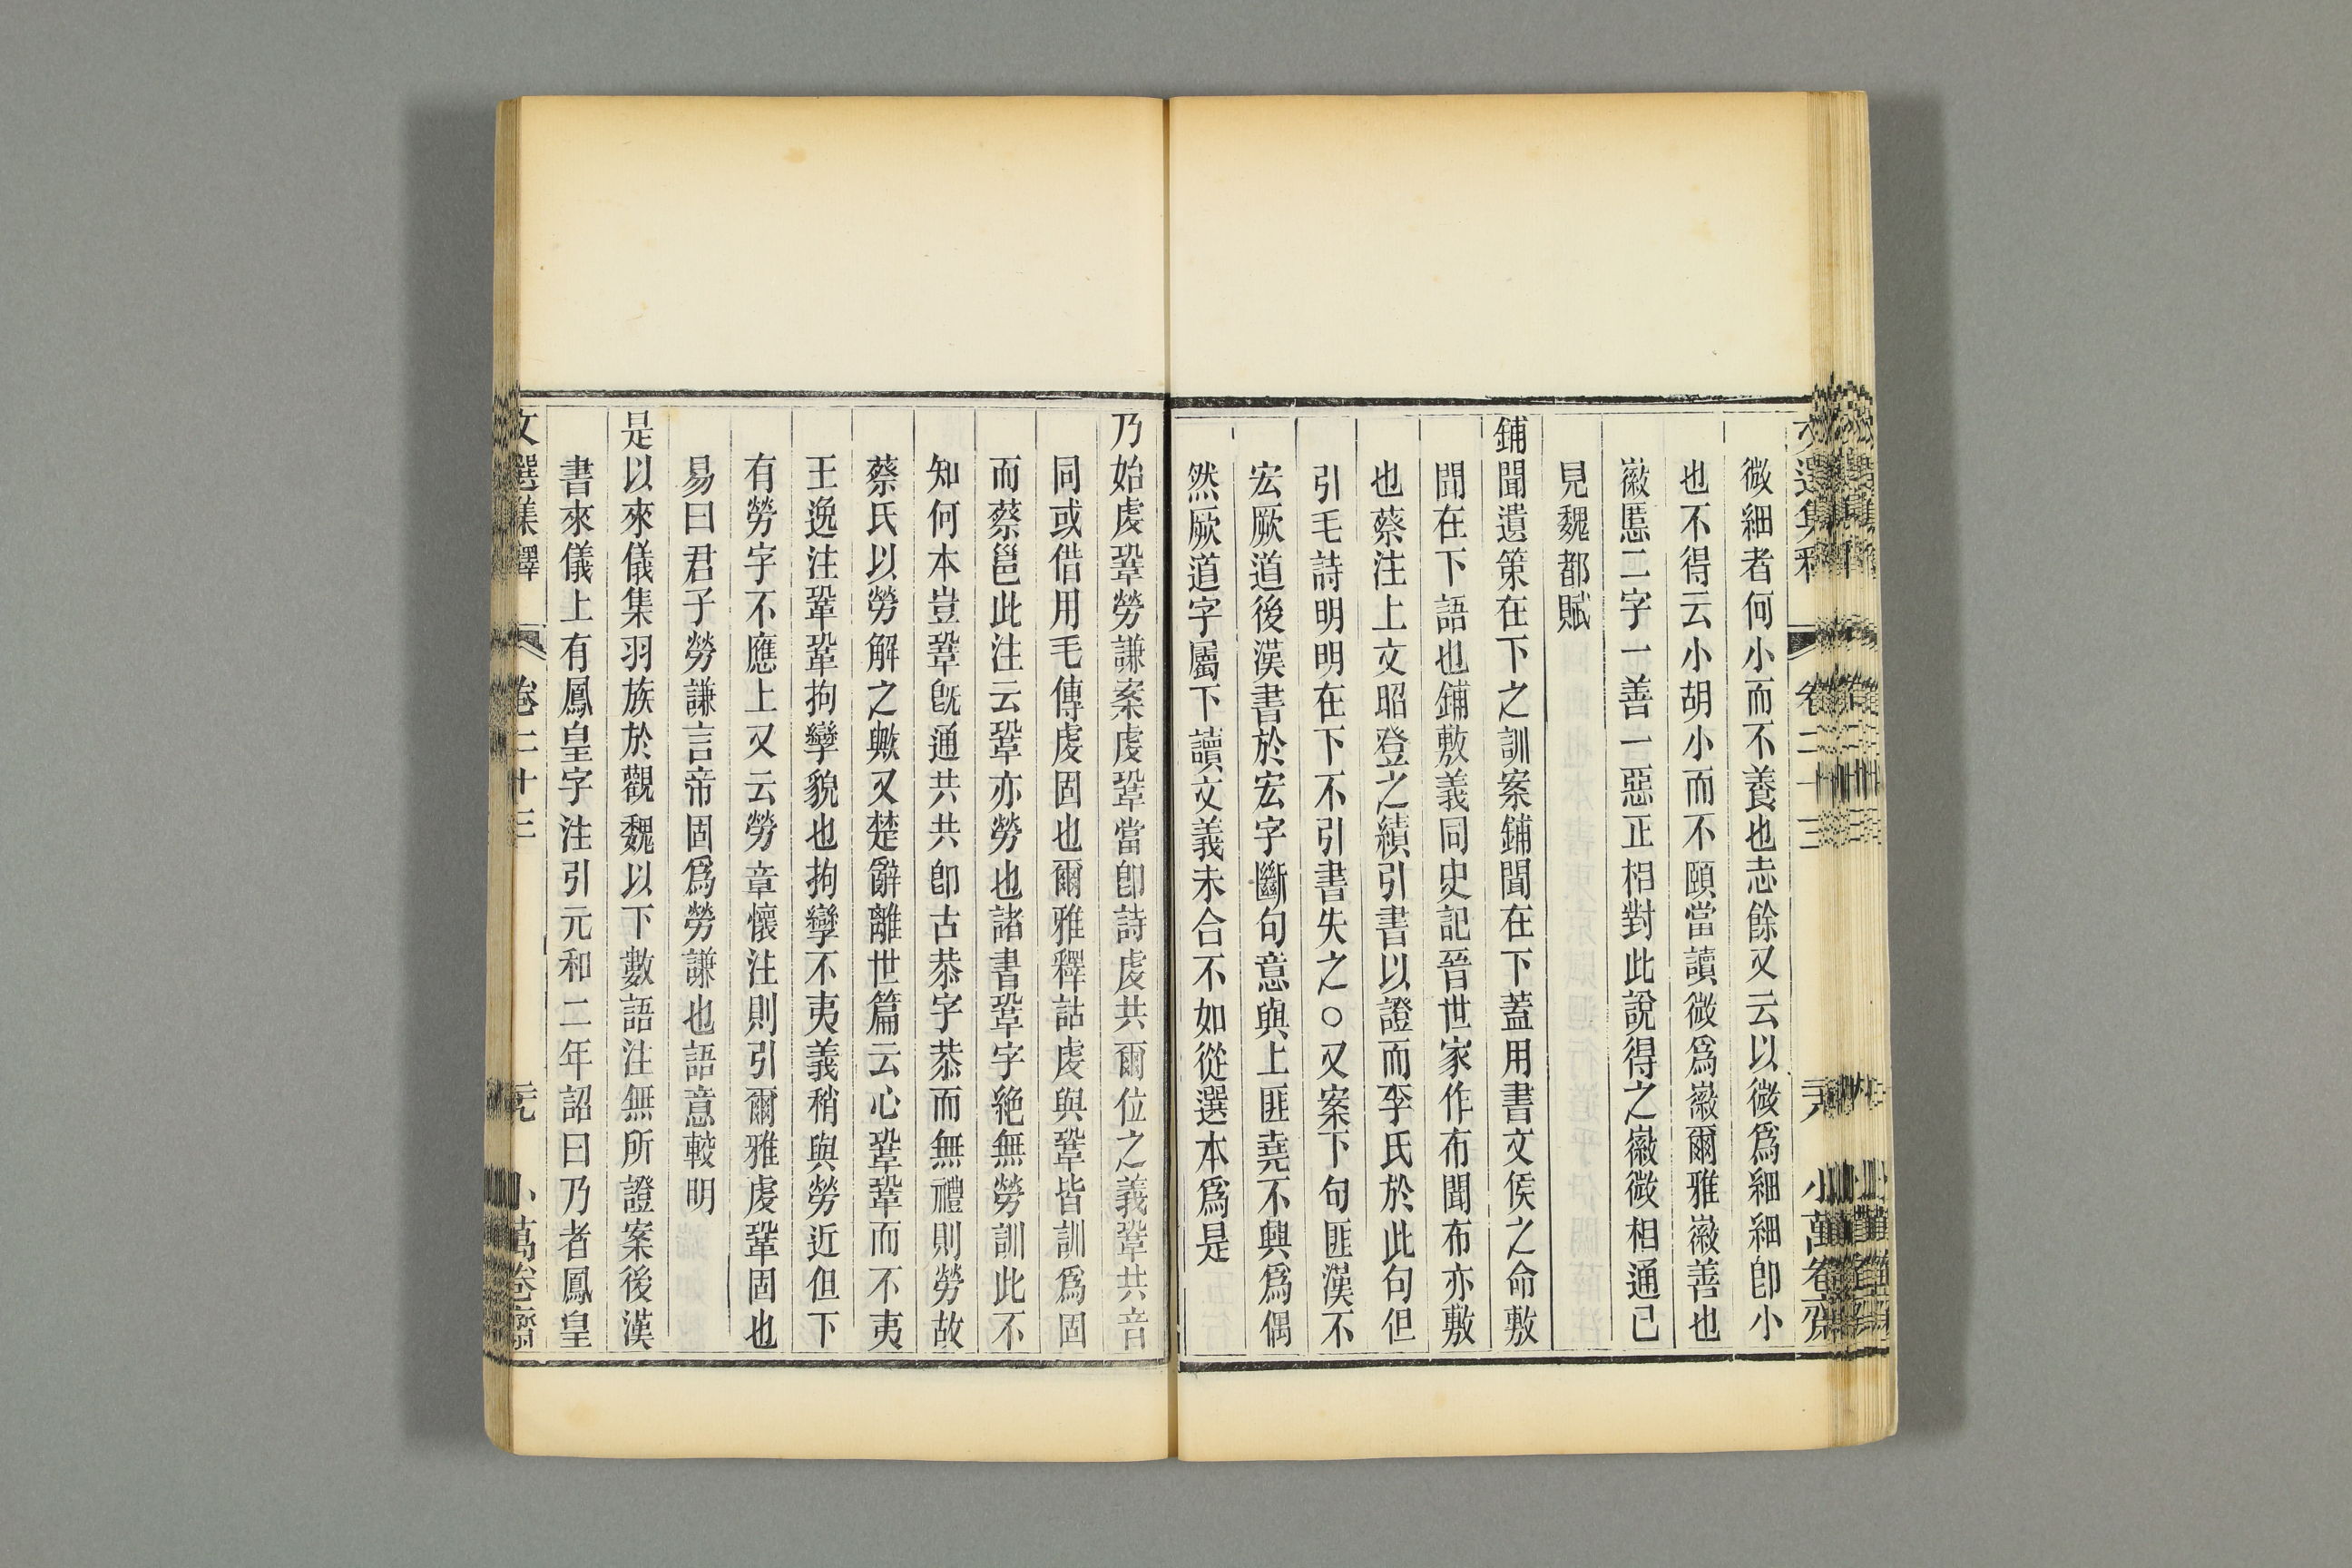 微細者何小而不養也志餘又云以微爲細細卽小
也不得云小胡小而不頤當讀微爲徽爾雅徽善也
徽慝二字一善一惡正相對此說得之徽微相通已
見魏都賦
鋪聞遺策在下之訓案鋪聞在下蓋用書文侯之命敷
聞在下語也鋪敷義同史記晉世家作布聞布亦敷
也蔡注上文昭登之績引書以證而李氏於此句但
引毛詩明明在下不引書失之○又案下句匪漢不
宏厥道後漢書於宏字斷句意與上匪堯不興爲偶
然厥道字屬下讀文義未合不如從選本爲是
乃始虔鞏勞謙案虔鞏當卽詩虔共爾位之義鞏共音
同或借用毛傳虔固也爾雅釋詁虔與鞏皆訓爲固
而蔡邕此注云鞏亦勞也諸書鞏字絶無勞訓此不
知何本豈鞏旣通共共卽古恭字恭而無禮則勞故
蔡氏以勞解之與又楚辭離世篇云心鞏鞏而不夷
王逸注鞏鞏拘攣貌也拘攣不夷義稍與勞近但下
有勞字不應上又云勞章懷注則引爾雅虔鞏固也
易曰君子勞謙言帝固爲勞謙也語意較明
是以來儀集羽族於觀魏以下數語注無所證案後漢
書來儀上有鳳皇字注引元和二年詔曰乃者鳳皇
文選集釋 卷二十三 小萬卷齋